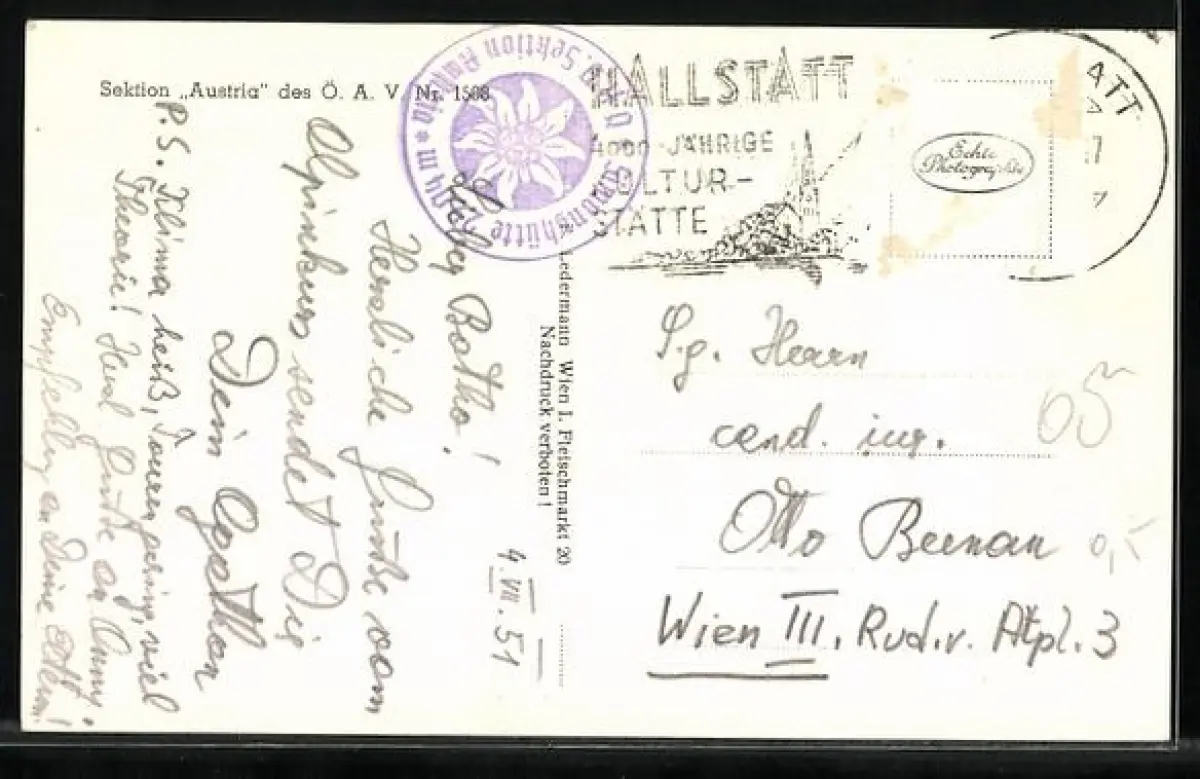 Sektion „Austria" des Ö. A. V. Nr. 1508
HALLSTATT
4000-JÄHRIGE
KULTUR-
STÄTTE
ATT
Simonyhütte 2204 m * Sektion Austria
Echte
Photographie
Ledermann Wien I. Fleischmarkt 20
Nachdruck verboten!
4. VII. 51
Lieber Botho!
Herzliche Grüße vom
Alpinkurs sendet Dir
Dein Agathon
P.S. Klima heiß, Touren gering, viel
Theorie! Herzl. Grüße an
Empfehlg. an Deine Eltern!
S.g. Herrn
cand. ing.
Otto Beenan
Wien III. Rud. v. Altpl. 3
05